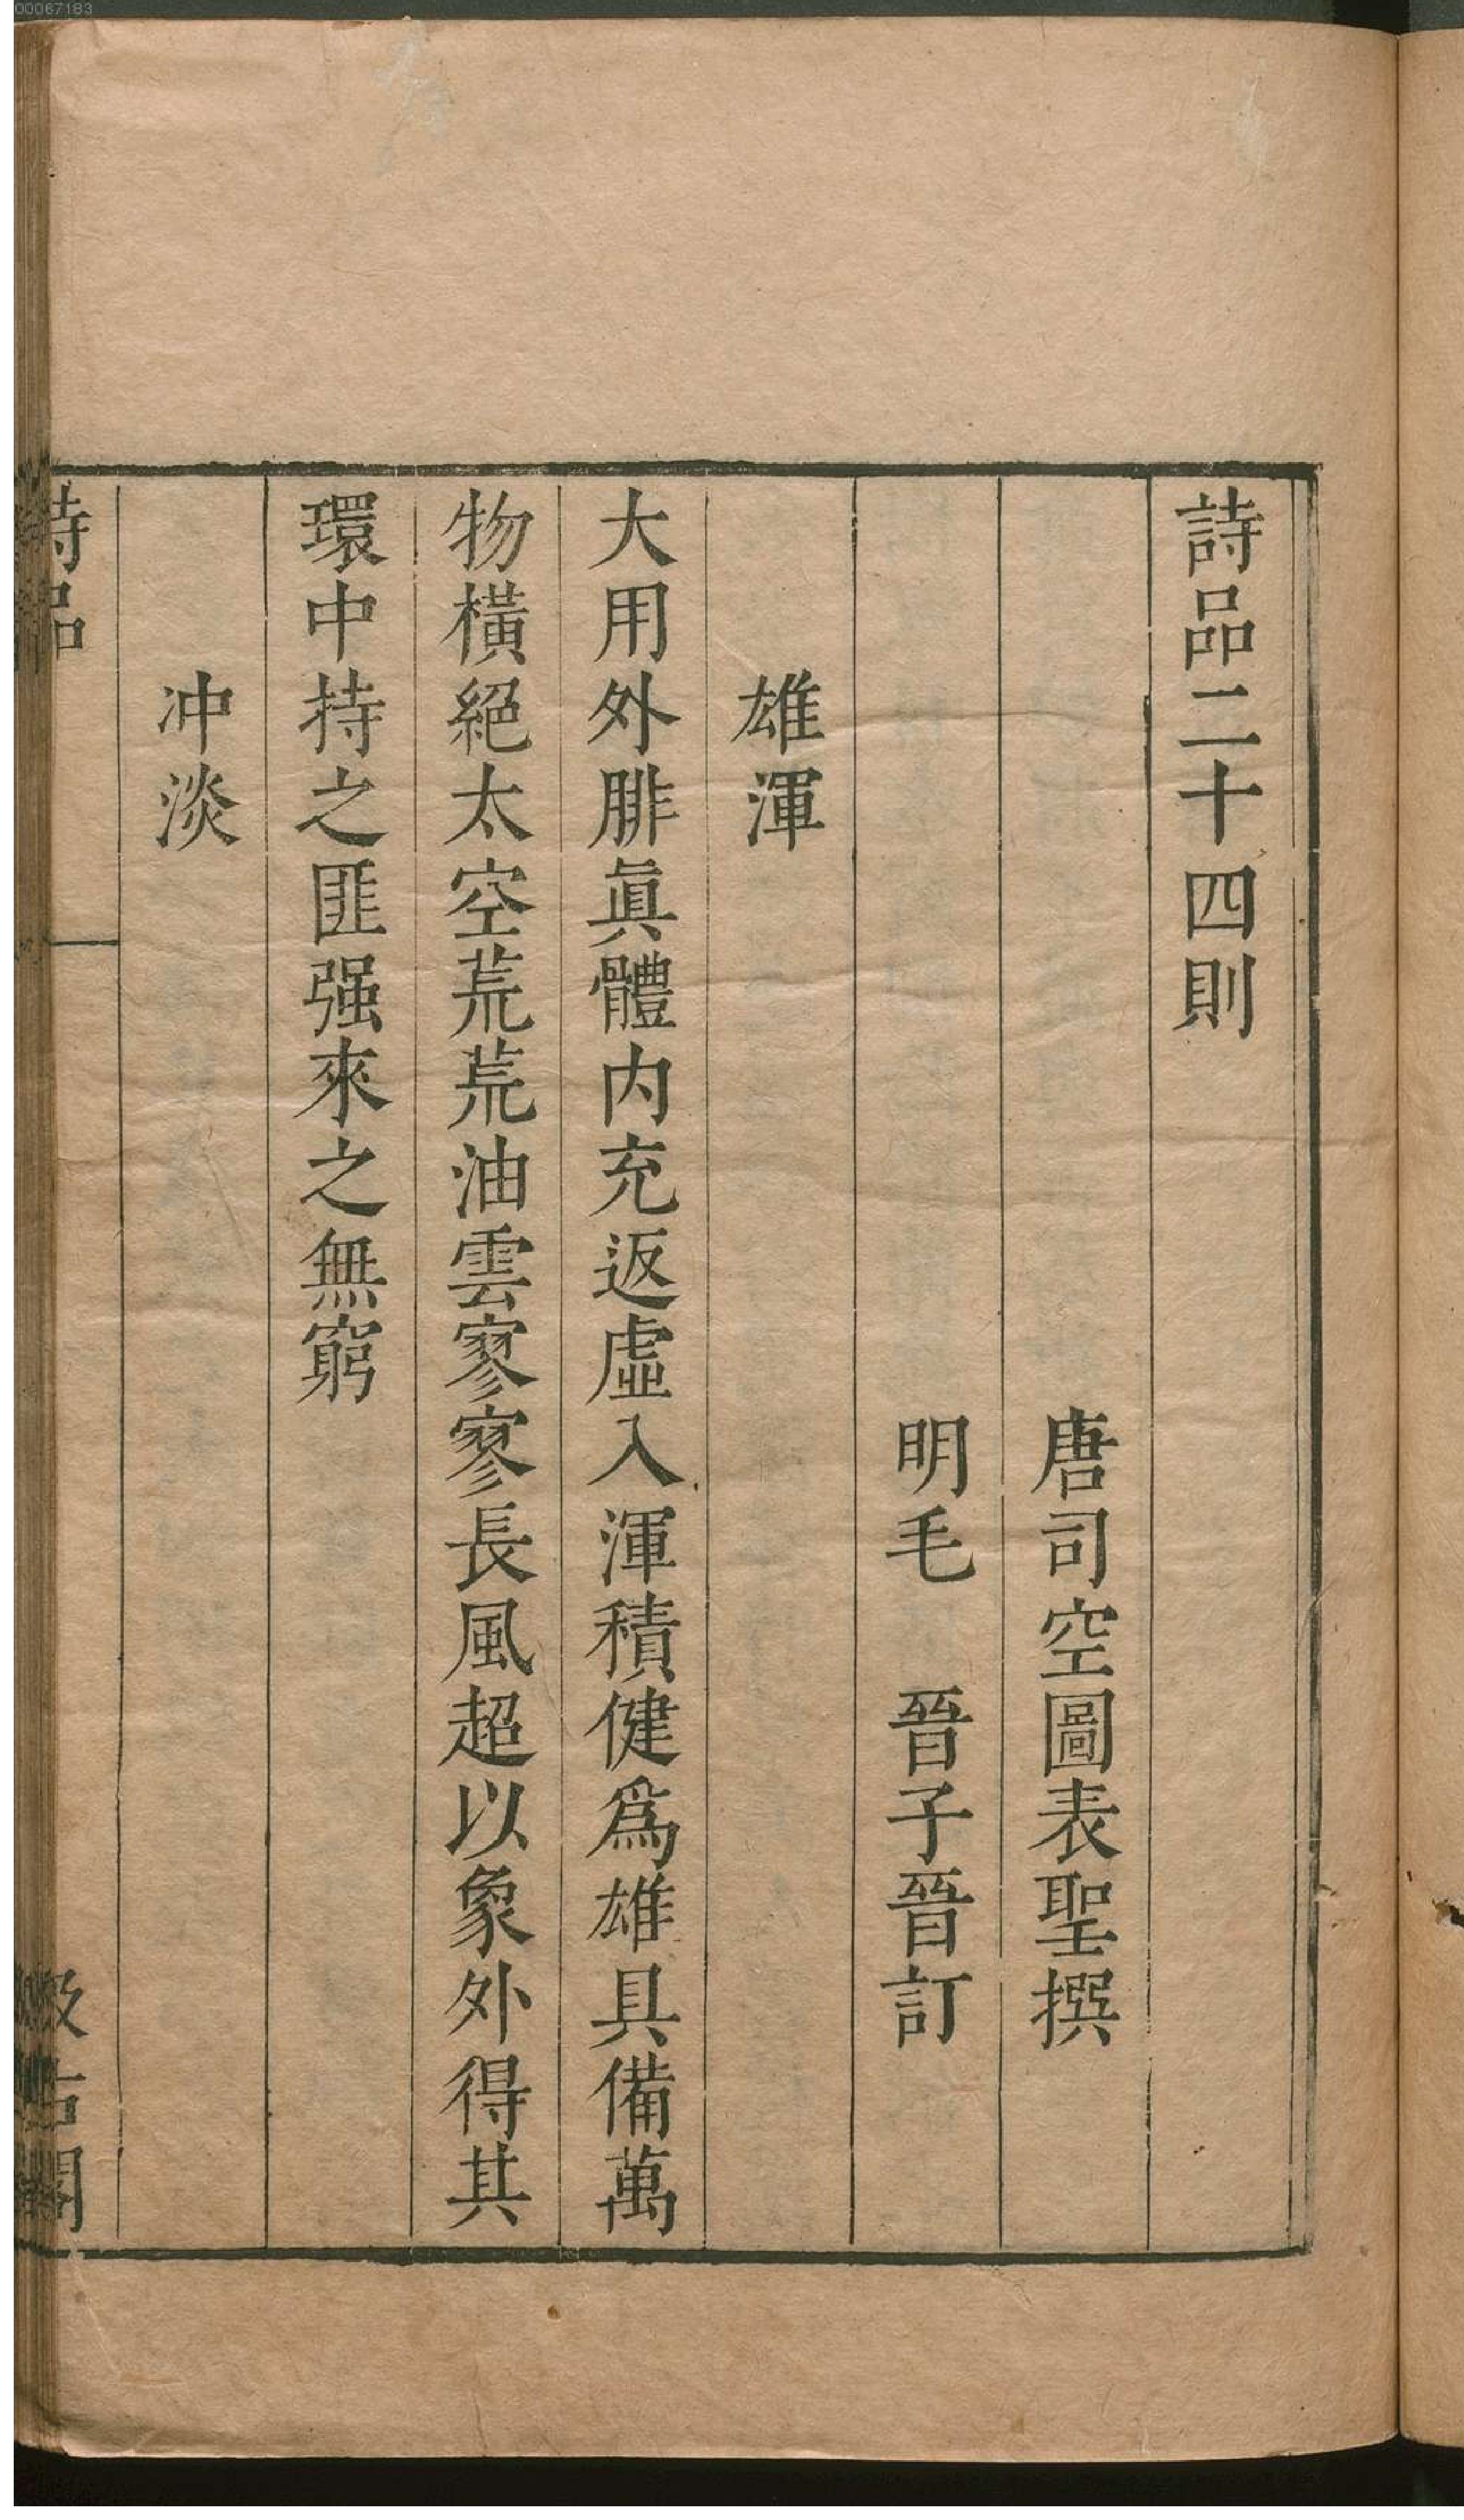 00067183
詩品二十四則
唐司空圖表聖撰
明毛　晉子晉訂
雄渾
大用外腓眞體内充返虛入渾積健爲雄具備萬
物橫絕太空荒荒油雲寥寥長風超以象外得其
環中持之匪强來之無窮
冲淡
詩品
汲古閣